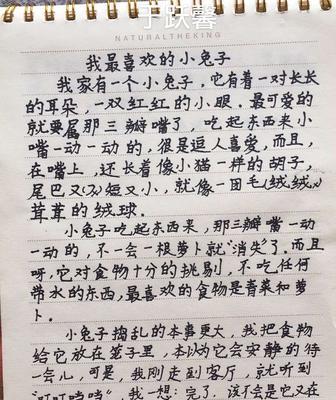 于跃馨
NATURALTHEKING
我最喜欢的小兔子
我家有一个小兔子，它有着一对长长
的耳朵，一双红红的小眼。最可爱的
就要属那三瓣嘴了，吃起东西来小
嘴一动一动的，很是逗人喜爱，而且，
在嘴上，还长着像小猫一样的胡子，
尾巴又短又小，就像一团毛绒绒
茸茸的绒球。
小兔子吃起东西来，那三瓣嘴一动
一动的，不一会一根萝卜就“消失”了。而且
呀，它对食物十分的挑剔，不吃任何
带水的东西，最喜欢的食物是青菜和萝
卜。
小兔子捣乱的本事更大，我把食物
给它放在笼子里，本以为它会安静的待
一会儿，可是，我刚走到客厅，就听到
“叮叮咚咚”，我一想：完了，该不会是它又在